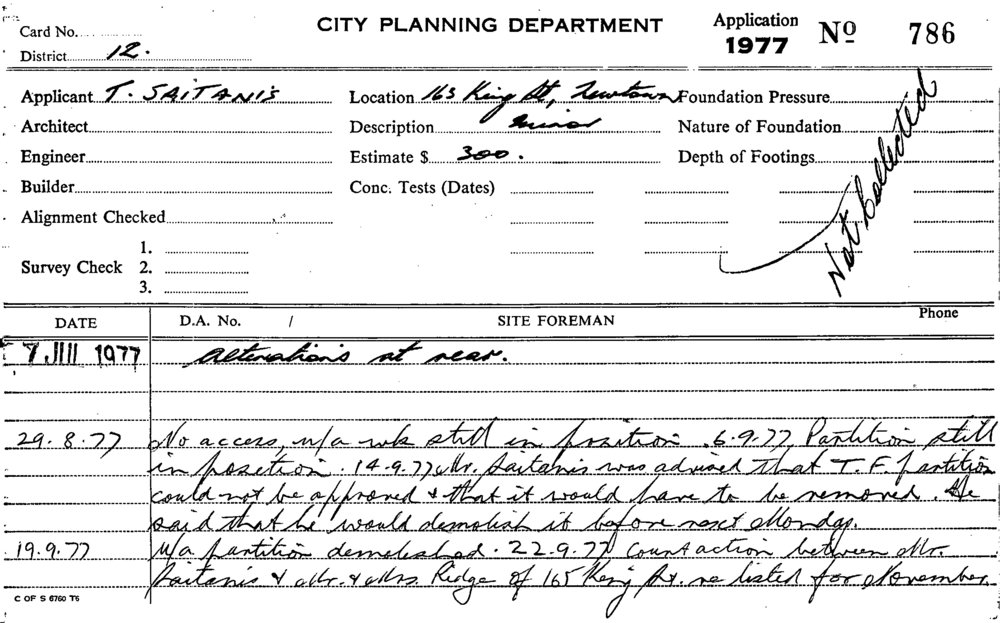 CITY PLANNING DEPARTMENT
Application
1977 Nº 786
Card No.
District 12.
Applicant T. SAITANIS
Location 163 King St, Newtown
Foundation Pressure
Architect
Description minor
Nature of Foundation
Engineer
Estimate $ 300.
Depth of Footings
Builder
Conc. Tests (Dates)
Not Collected
Alignment Checked
1.
Survey Check 2.
3.
DATE D.A. No. / SITE FOREMAN Phone
7 JUL 1977 Alterations at rear.
29.8.77 No access, u/a wk still in position. 6.9.77 Partition still
in position. 14.9.77 Mr. Saitanis was advised that T.F. partition
could not be approved & that it would have to be removed. He
said that he would demolish it before next Monday.
19.9.77 u/a partition demolished. 22.9.77 Court action between Mr.
Saitanis & Mr. & Mrs. Ridge of 165 King St. re listed for November.
C OF S 6760 T6